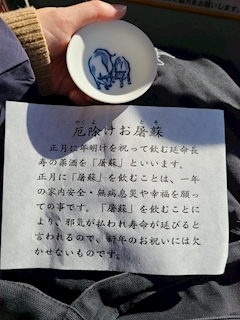 厄除けお屠蘇
正月に年明けを祝って飲む延命長
寿の薬酒を「屠蘇」といいます。
正月に「屠蘇」を飲むことは、一年
の家内安全・無病息災や幸福を願っ
ての事です。「屠蘇」を飲むことに
より、邪気が払われ寿命が延びると
言われるので、新年のお祝いには欠
かせないものです。